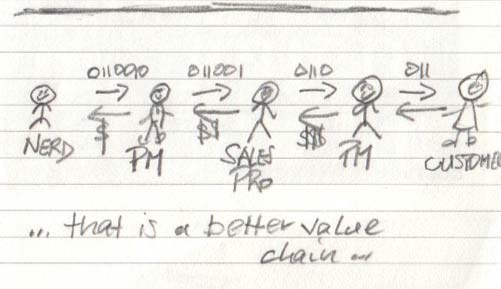 011000 011001 0110 011
$ $$ $$$
NERD PM SALES PM CUSTOMER
PRO
... that is a better value
chain ...